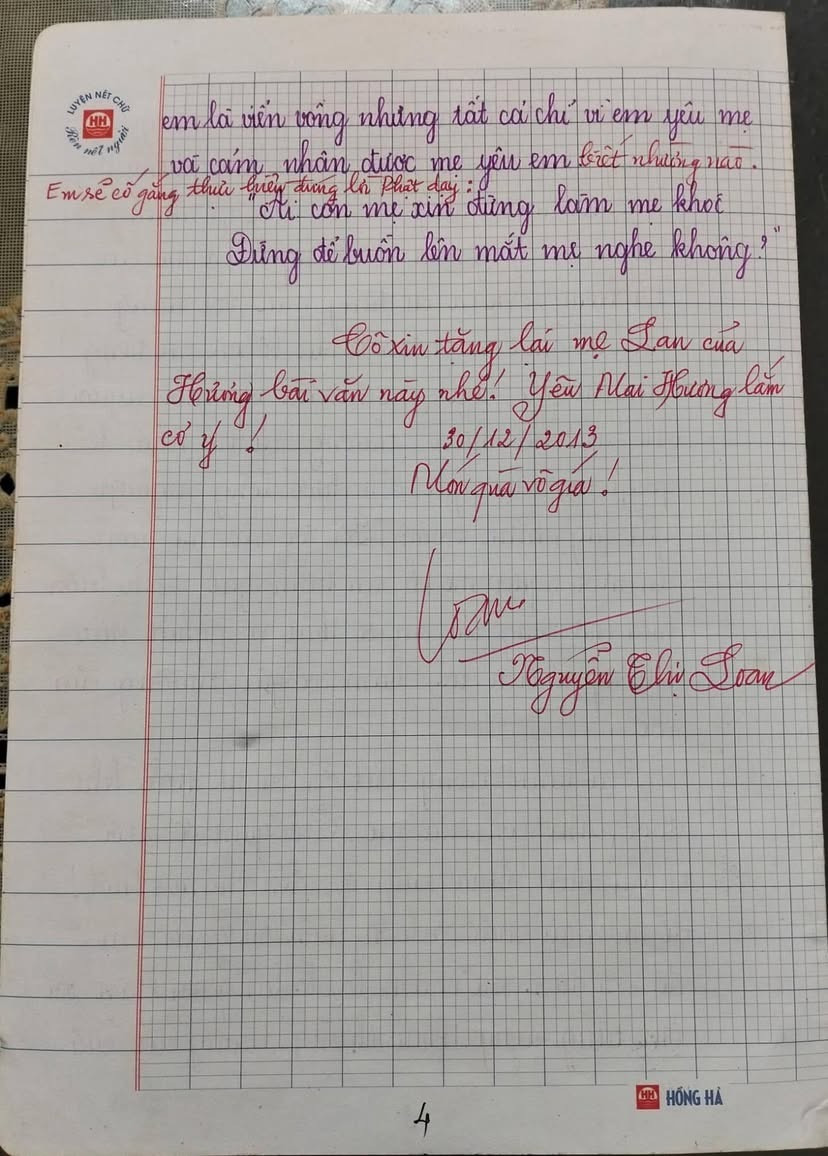 LUYỆN NÉT CHỮ
HH
Rèn nét người
em là viển vông nhưng tất cả chỉ vì em yêu mẹ
và cảm nhận được mẹ yêu em biết nhường nào.
Em sẽ cố gắng thực hiện đúng lời Phật dạy:
"Ai còn mẹ xin đừng làm mẹ khóc
Đừng để buồn lên mắt mẹ nghe không?"
Cô xin tặng lại mẹ Lan của
Hương bài văn này nhé! Yêu Mai Hương lắm
cơ ý!
30/12/2013
Món quà vô giá!
Loan
Nguyễn Thị Loan
HH HỒNG HÀ
4